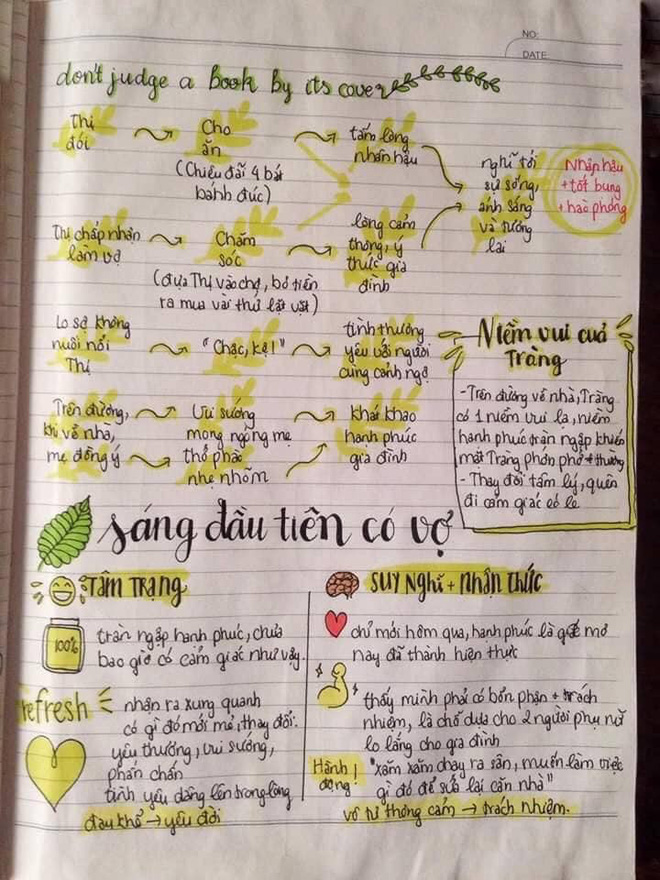 NO:
DATE
don't judge a book by its cover
Thị
đói
Cho
ăn
(Chiêu đãi 4 bát
bánh đúc)
tấm lòng
nhân hậu
nghĩ tới
sự sống,
ánh sáng
và tương
lai
Nhân hậu
+ tốt bụng
+ hào phóng
Thị chấp nhận
làm vợ
Chăm
sóc
(đưa Thị vào chợ, bỏ tiền
ra mua vài thứ lặt vặt)
lòng cảm
thông, ý
thức gia
đình
Lo sợ không
nuôi nổi
Thị
"Chậc, kệ!"
tình thương
yêu với người
cùng cảnh ngộ
Trên đường,
khi về nhà,
mẹ đồng ý
Vui sướng
mong ngóng mẹ
thở phào
nhẹ nhõm
khát khao
hạnh phúc
gia đình
Niềm vui của
Tràng
- Trên đường về nhà, Tràng
có 1 niềm vui lạ, niềm
hạnh phúc tràn ngập khiến
mặt Tràng phớn phở # thường
- Thay đổi tâm lý, quên
đi cảm giác có lẽ
sáng đầu tiên có vợ
Tâm Trạng
100%
tràn ngập hạnh phúc, chưa
bao giờ có cảm giác như vậy.
refresh
nhận ra xung quanh
có gì đó mới mẻ, thay đổi.
yêu thương, vui sướng,
phấn chấn
tình yêu dâng lên trong lòng
đau khổ → yêu đời
Suy Nghĩ + nhận thức
chỉ mới hôm qua, hạnh phúc là giấc mơ
nay đã thành hiện thực
thấy mình phải có bổn phận + trách
nhiệm, là chỗ dựa cho 2 người phụ nữ
lo lắng cho gia đình
Hành
động!
"xăm xăm chạy ra sân, muốn làm việc
gì đó để sửa lại căn nhà"
vô tư thông cảm → trách nhiệm.